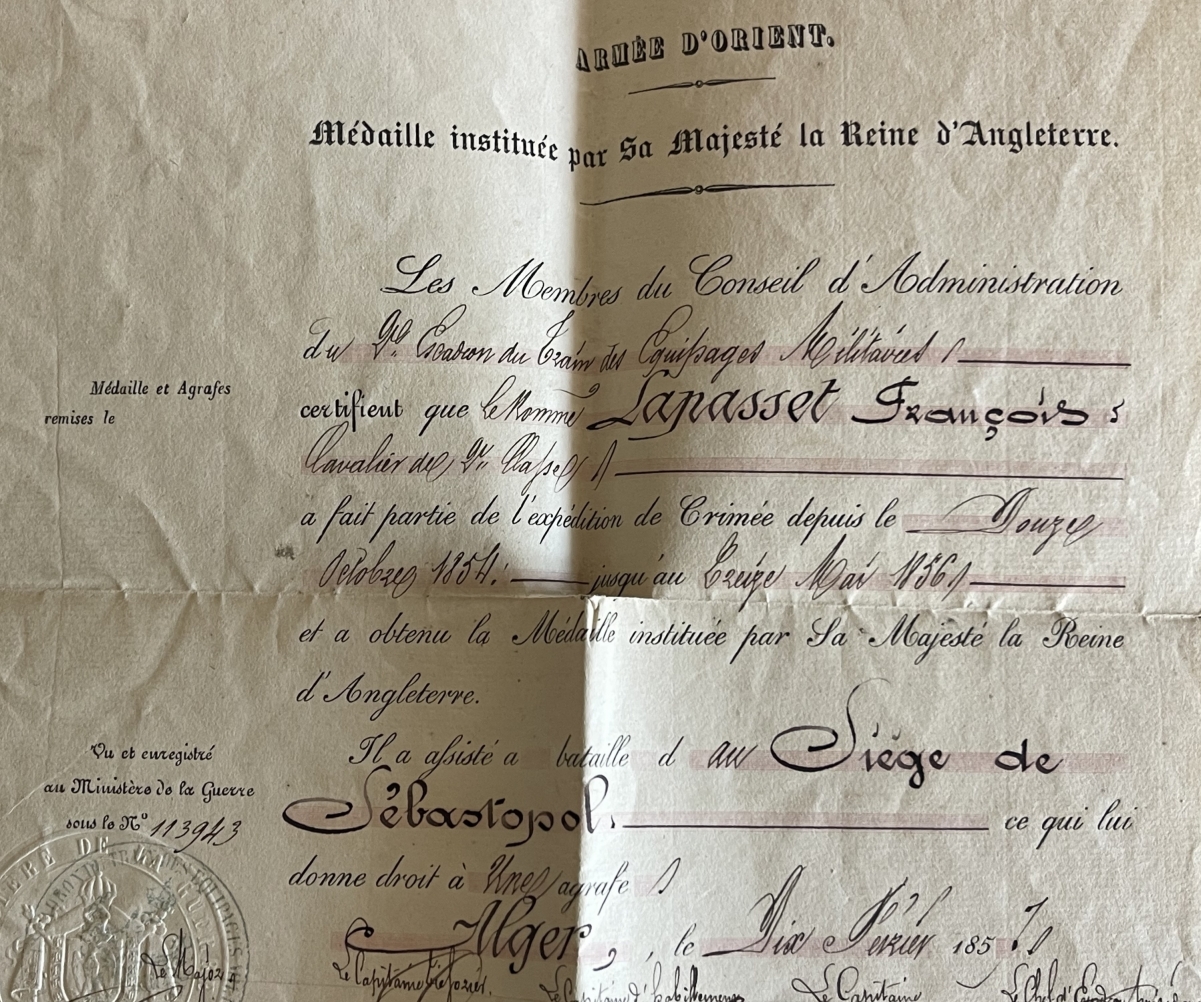 ARMÉE D'ORIENT.
Médaille instituée par Sa Majesté la Reine d'Angleterre.
Les Membres du Conseil d'Administration
du 2e Escadron du Train des Equipages Militaires
Médaille et Agrafes
remises le
certifient que le Nommé Lapasset François
Cavalier de 2e Classe
a fait partie de l'expédition de Crimée depuis le Douze
Octobre 1854. jusqu'au Treize Mai 1856
et a obtenu la Médaille instituée par Sa Majesté la Reine
d'Angleterre.
Il a assisté a bataille d au Siège de
Sébastopol. ce qui lui
Vu et enregistré
au Ministère de la Guerre
sous le No 113943
donne droit à Une agrafe
Alger, le Dix Février 1857
Le Major
Le Capitaine Trésorier,
Le Capitaine d'habillement
Le Capitaine